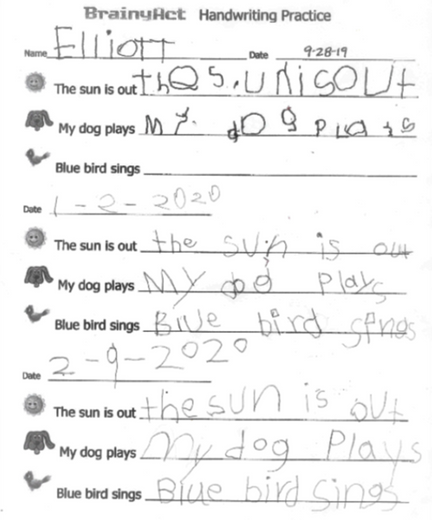 BrainyAct Handwriting Practice
Name Elliott Date 9-28-19
The sun is out thes.unisout
My dog plays My. dog plays
Blue bird sings
Date 1-2-2020
The sun is out the sun is out
My dog plays My dog plays
Blue bird sings Blue bird sings
Date 2-9-2020
The sun is out the sun is out
My dog plays My dog Plays
Blue bird sings Blue bird sings